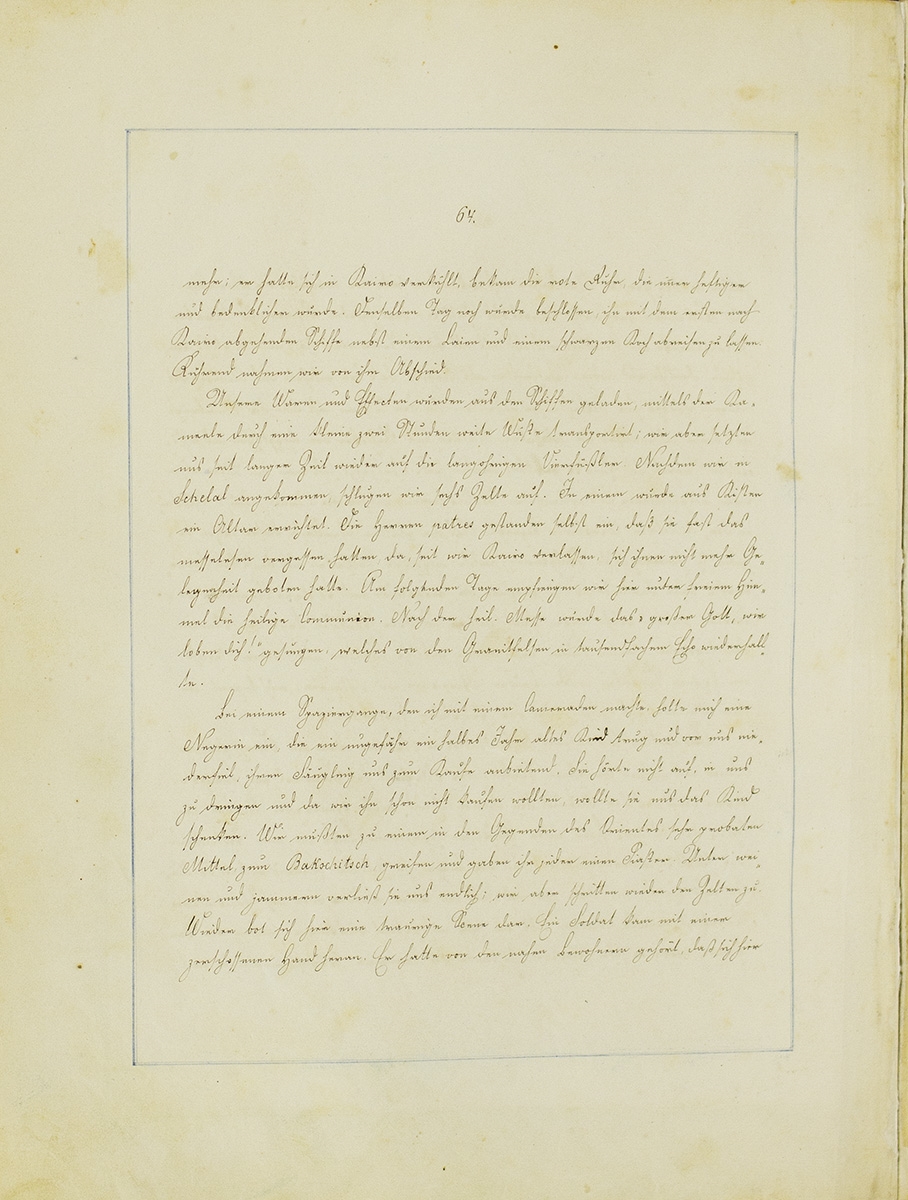 64.
mehr; er hatte sich in Kairo verkühlt, bekam die rote Ruhr, die im̄er heftiger
und bedenklicher wurde. Denselben Tag noch wurde beschlossen, ihn mit dem ersten nach
Kairo abgehenden Schiffe nebst einem Laien und einem schwarzen Koch abreisen zu lassen.
Rührend nahmen wir von ihm Abschied.
Unsere Waren und Effecten wurden aus den Schiffen geladen, mittels der Ka-
meele durch eine kleine zwei Stunden weite Wüste transportirt; wir aber setzten
uns seit langer Zeit wieder auf die langohrigen Vierfüßler. Nachdem wir in
Schelal angekommen, schlugen wir sechs Zelte auf. In einem wurde aus Kisten
ein Altar errichtet. Die Herren patres gestanden selbst ein, daß sie fast das
messelesen vergessen hatten, da, seit wir Kairo verlassen, sich ihnen nicht mehr Ge-
legenheit geboten hatte. Am folgenden Tage empfiengen wir hier unter freiem Him-
mel die heilige Communion. Nach der heil. Messe wurde das: großer Gott, wir
loben dich!" gesungen, welches von den Granitfelsen in tausendfachem Echo wiederhall-
te.
Bei einem Spaziergange, den ich mit einem Cameraden machte, holte mich eine
Negerin ein, die ein ungefähr ein halbes Jahr altes Kind trug und vor uns nie-
derfiel, ihren Säugling uns zum Kaufe anbietend. Sie hörte nicht auf, in uns
zu dringen und da wir ihn schon nicht kaufen wollten, wollte sie uns das Kind
schenken. Wir mußten zu einem in den Gegenden des Orientes sehr probaten
Mittel, zum Bakschitsch, greifen und gaben ihr jeder einen Piaster. Unter wei-
nen und jammern verließ sie uns endlich; wir aber schritten wieder den Zelten zu.
Wieder bot sich hier eine traurige Scene dar. Ein Soldat kam mit einer
zerschossenen Hand heran. Er hatte von den nahen Bewohnern gehört, daß sich hier